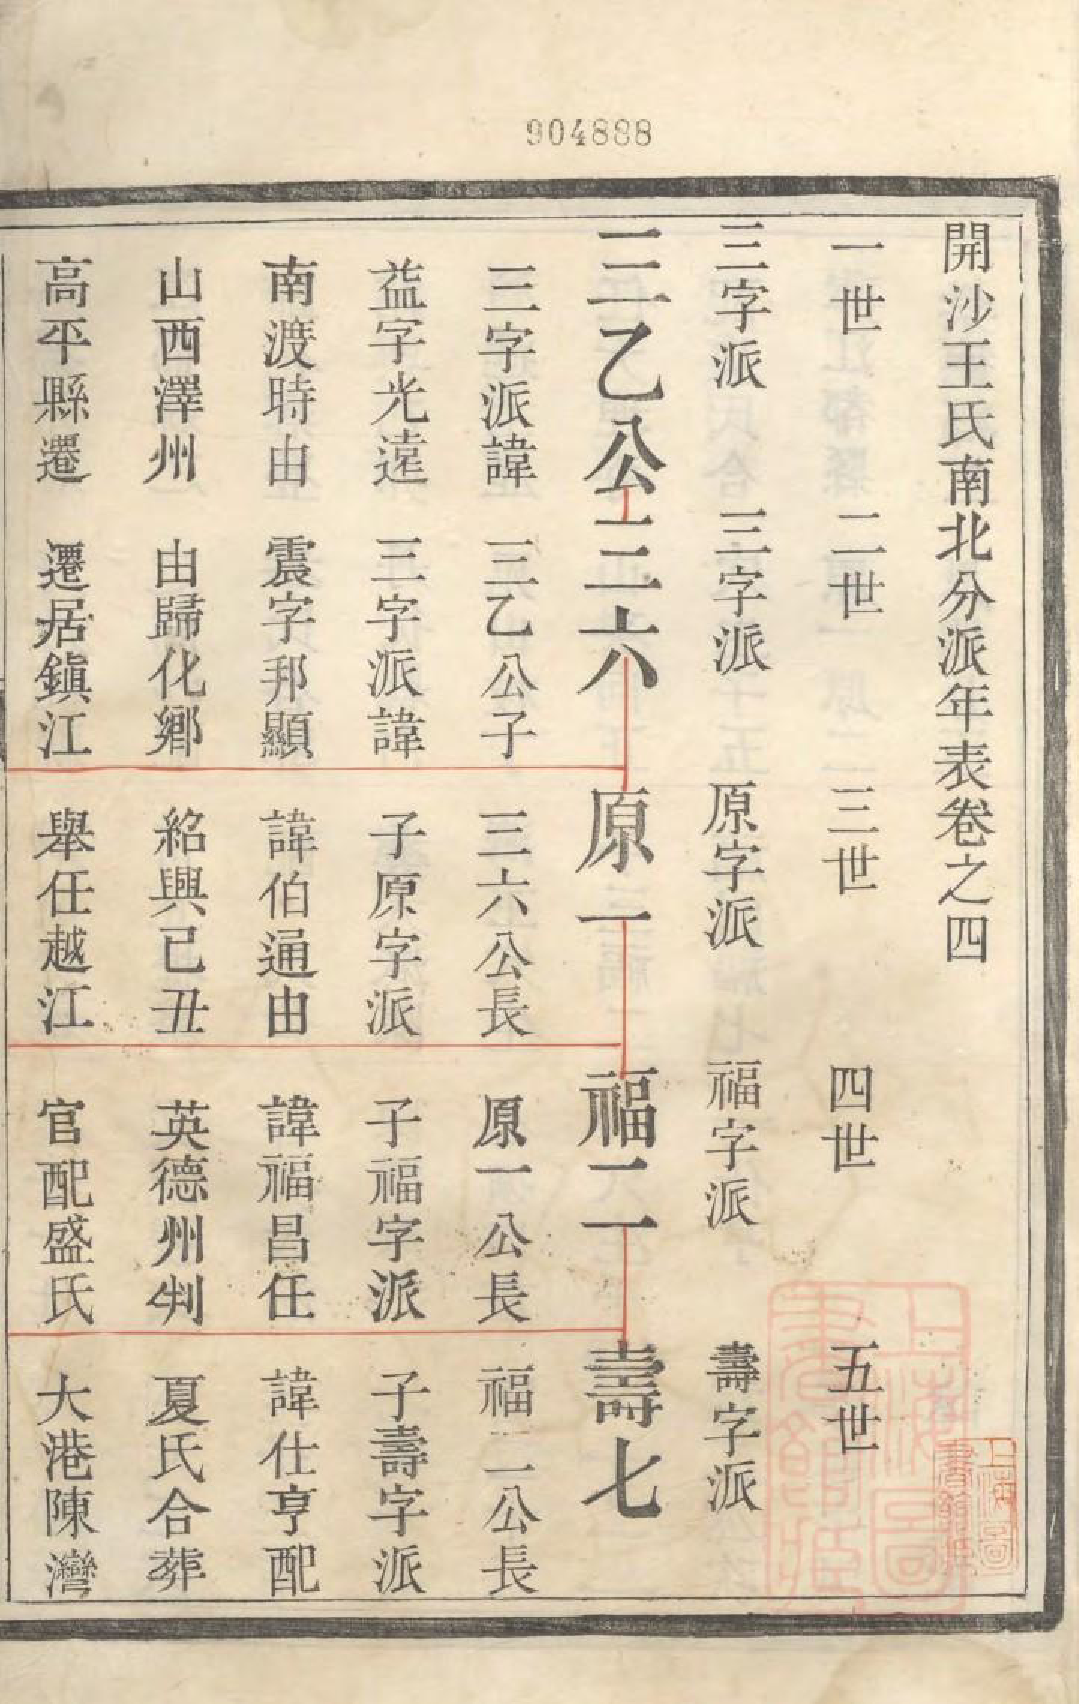 904888
開沙王氏南北分派年表卷之四
一世 二世 三世 四世 五世
三字派 三字派 原字派 福字派 壽字派
三乙公 三六 原一 福二 壽七
三字派諱 三乙公子 三六公長 原一公長 福二公長
益字光遠 三字派諱 子原字派 子福字派 子壽字派
南渡時由 震字邦顯 諱伯通由 諱福昌任 諱仕亨配
山西澤州 由歸化鄉 紹興己丑 英德州判 夏氏合葬
高平縣遷 遷居鎮江 舉任越江 官配盛氏 大港陳灣
上海圖書館藏
上海圖書館藏